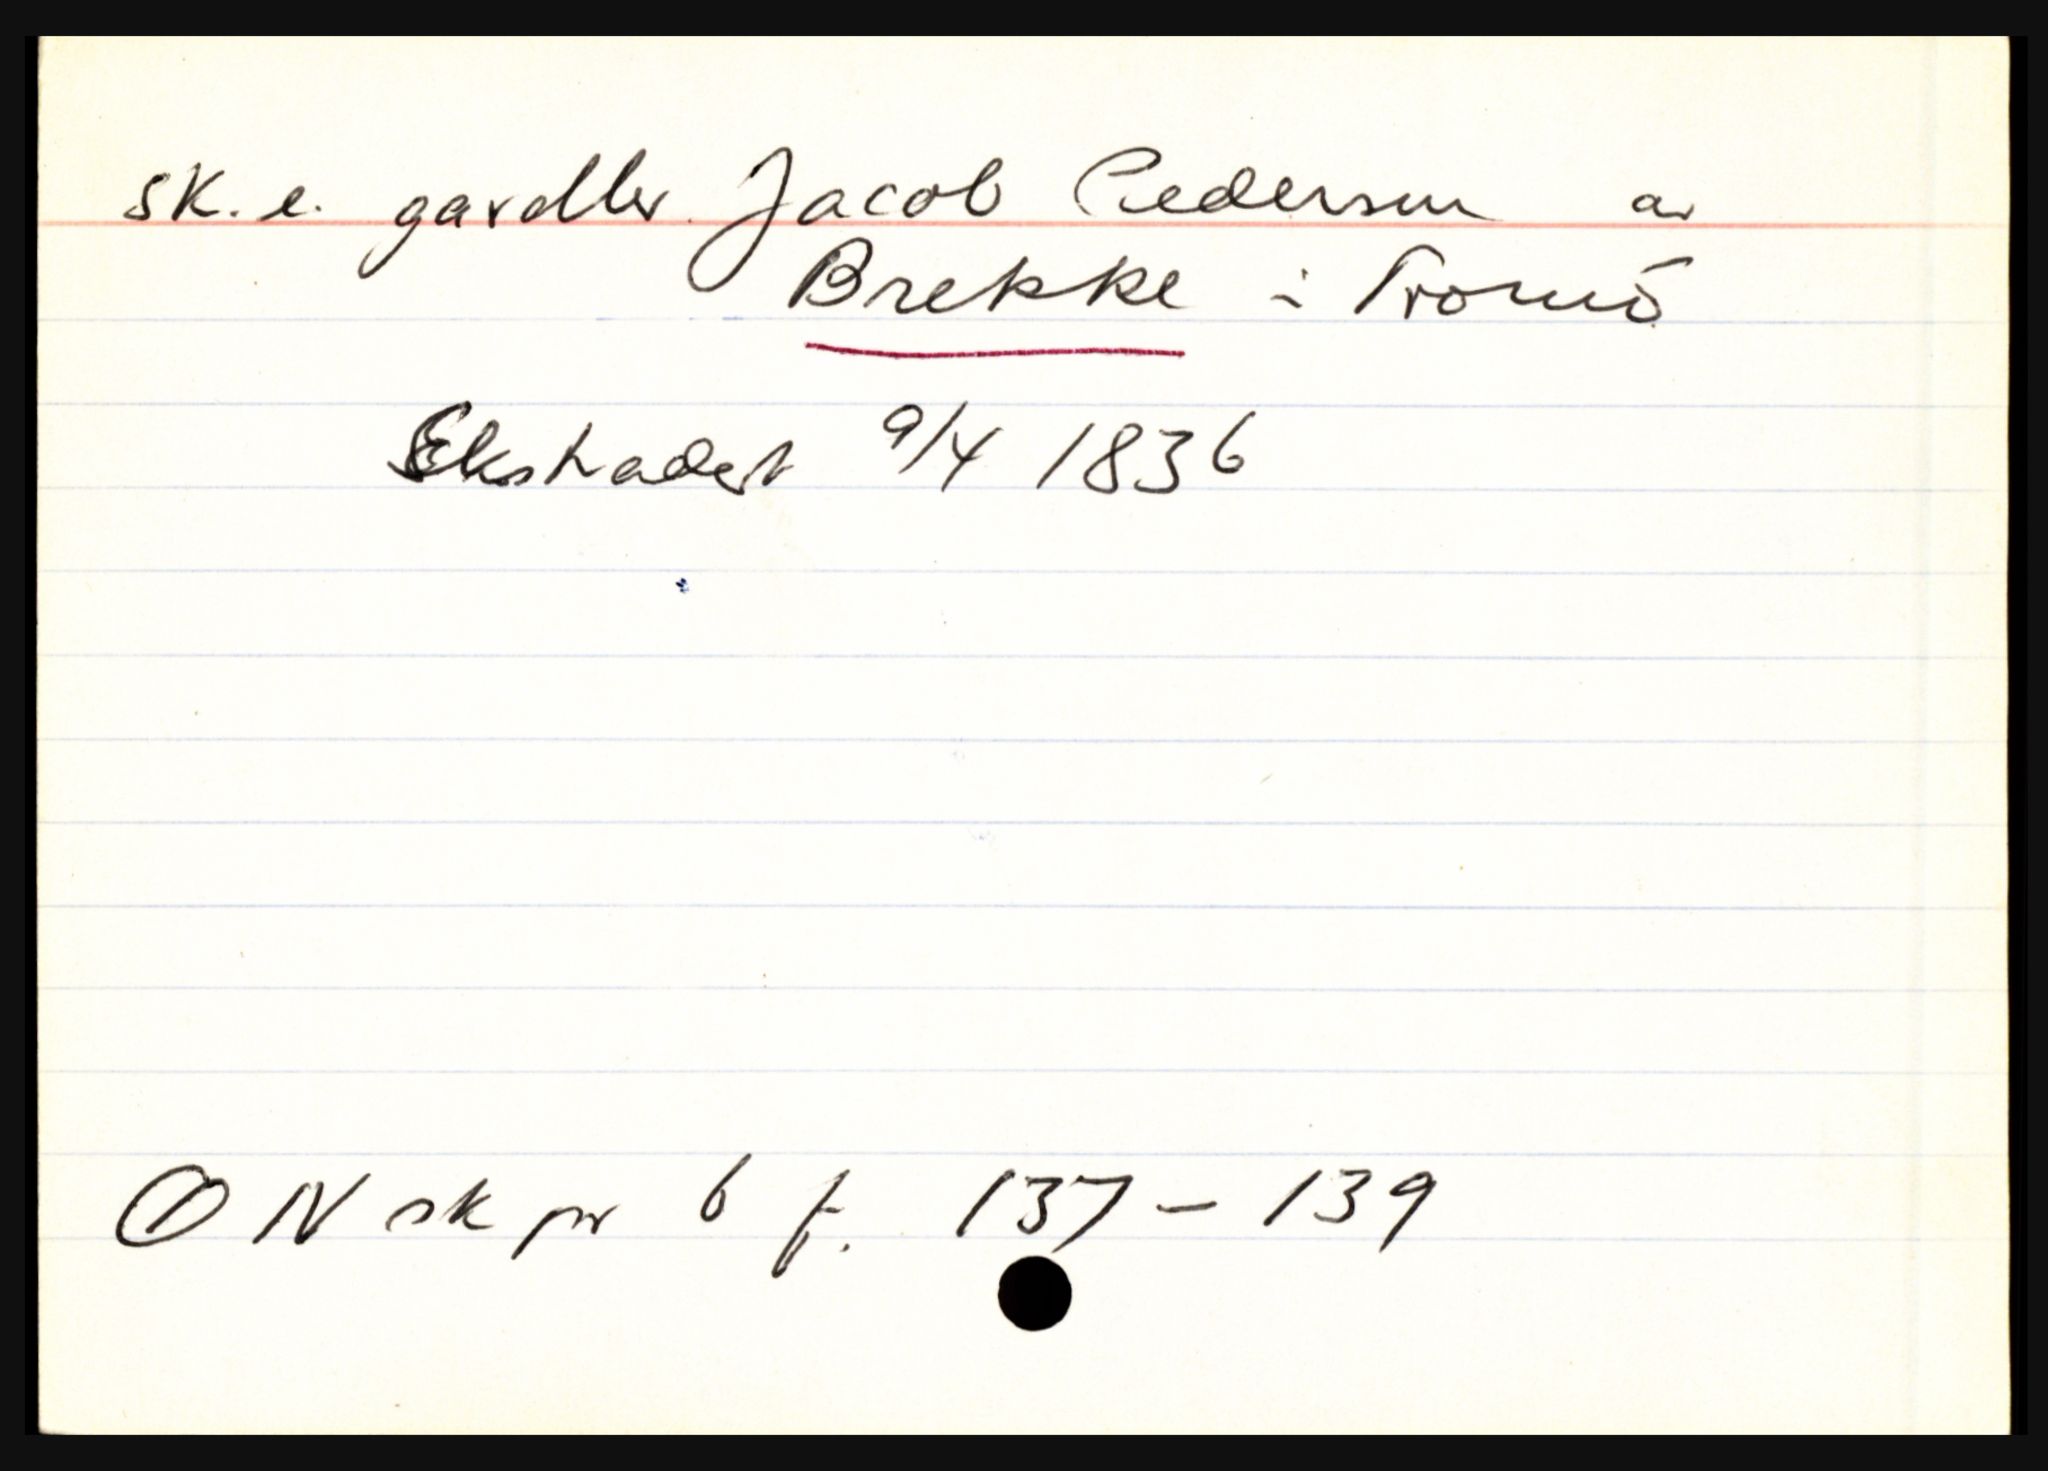 sk. e. gardbr. Jacob Pedersen av
Brekke i Tromö
Ekstradest 9/4 1836
N sk pr 6 f. 137 – 139